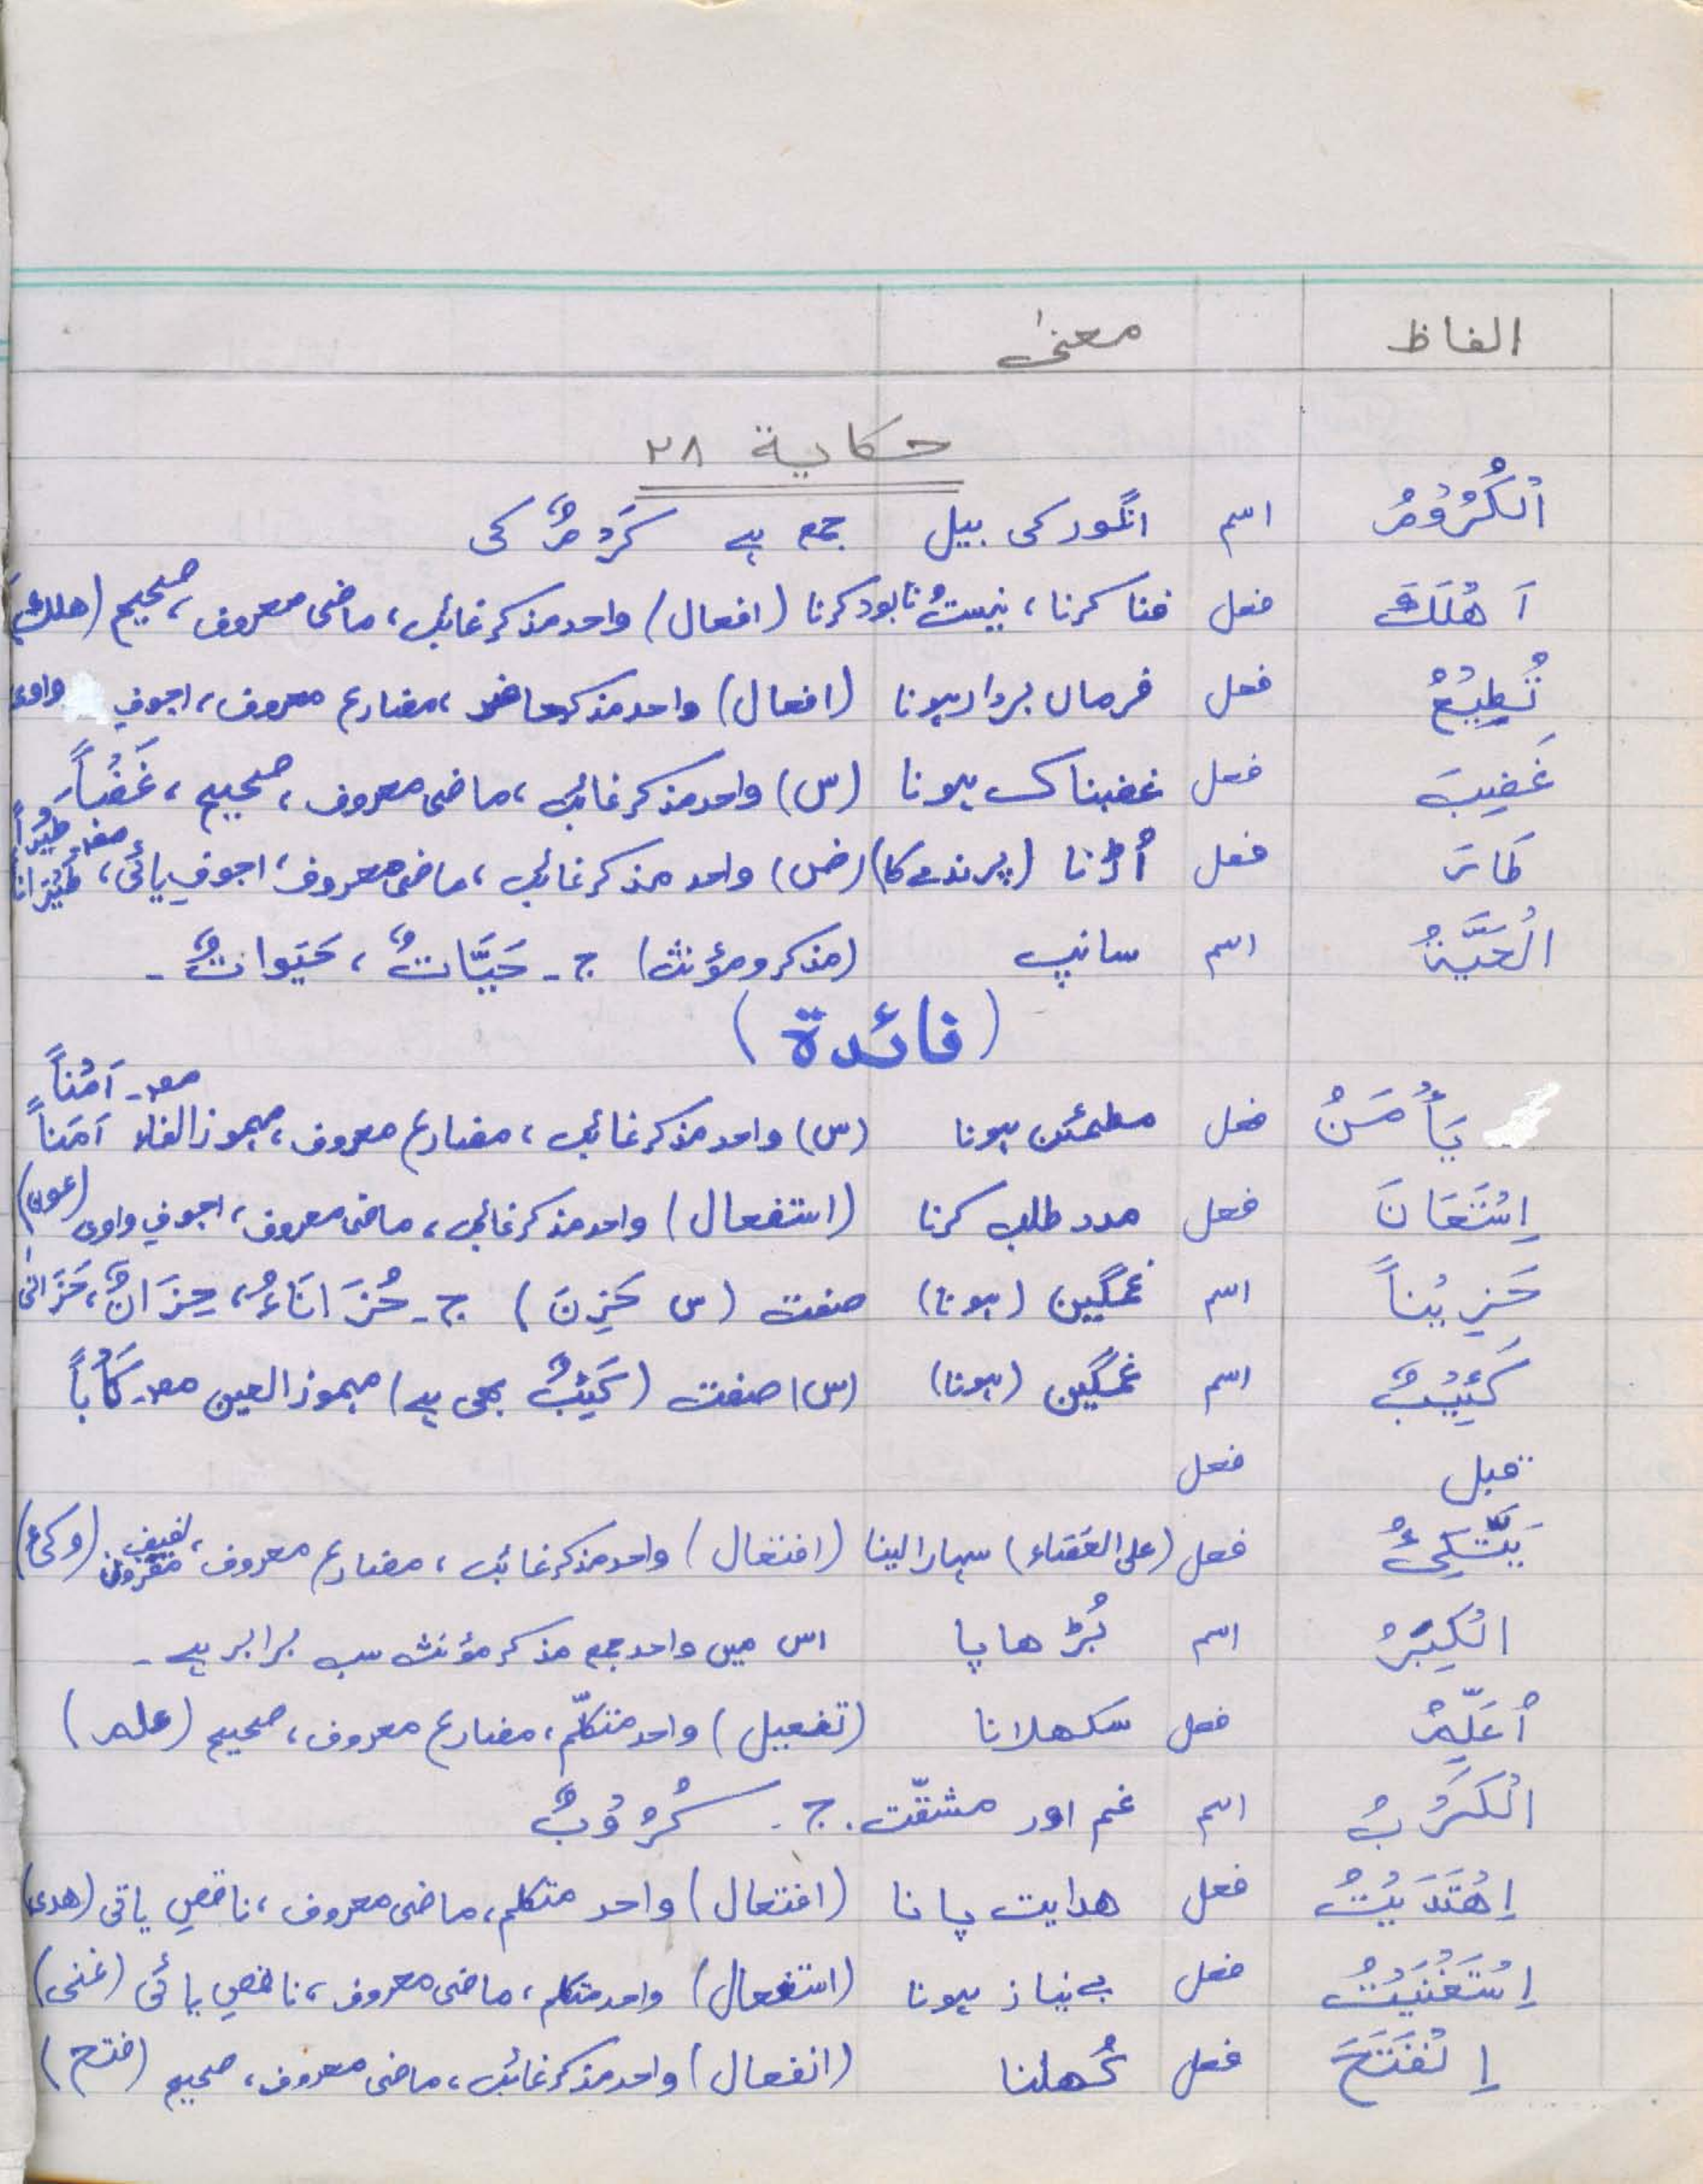 الفاظ معنیٰ
حکایة ۲۸
اَلْکُرُوْمُ اسم انگور کی بیل جمع ہے کَرْمٌ کی
اَهْلَكَ فعل فنا کرنا، نیست نابود کرنا (افعال) واحد مذکر غائب، ماضی معروف، صحیح (هلك)
تُطِیْعُ فعل فرماں بردار ہونا (افعال) واحد مذکر حاضر، مضارع معروف، اجوفِ واوی
غَضِبَ فعل غضبناک ہونا (س) واحد مذکر غائب، ماضی معروف، صحیح، غَضَباً
طَارَ فعل اُڑنا (پرندے کا) (ض) واحد مذکر غائب، ماضی معروف، اجوفِ یائی، مصدر طَیْراً طَیَرَاناً
الْحَیَّةُ اسم سانپ (مذکر و مؤنث) ج۔ حَیَّاتٌ، حَیَواتٌ۔
(فائدة)
یَأْمَنُ فعل مطمئن ہونا (س) واحد مذکر غائب، مضارع معروف، مہموز الفاء مصد۔ اَمْناً اَمَناً
اِسْتَعَانَ فعل مدد طلب کرنا (استفعال) واحد مذکر غائب، ماضی معروف، اجوفِ واوی (عون)
حَزِیْناً اسم غمگین (ہونا) صفت (س حَزِنَ) ج۔ حُزَانَاءُ، حِزَانٌ، حَزَانٰی
کَئِیْبٌ اسم غمگین (ہونا) (س) صفت (کَئِبٌ بھی ہے) مہموز العین مصد۔ کَأْباً
قبل فعل
یَتَّکِئُ فعل (علی العَصَاء) سہارا لینا (افتعال) واحد مذکر غائب، مضارع معروف، لفیف مقرون (وکیء)
الْکِبَرُ اسم بُڑھاپا اس میں واحد جمع مذکر مؤنث سب برابر ہے۔
اُعَلِّمُ فعل سکھلانا (تفعیل) واحد متکلّم، مضارع معروف، صحیح (علم)
الْکَرْبُ اسم غم اور مشقّت۔ ج۔ کُرُوْبٌ
اِهْتَدَیْتُ فعل هدایت پانا (افتعال) واحد متکلم، ماضی معروف، ناقصِ یائی (هدی)
اِسْتَغْنَیْتُ فعل بے نیاز ہونا (استفعال) واحد متکلم، ماضی معروف، ناقصِ یائی (غنی)
اِنْفَتَحَ فعل کُھلنا (انفعال) واحد مذکر غائب، ماضی معروف، صحیح (فتح)